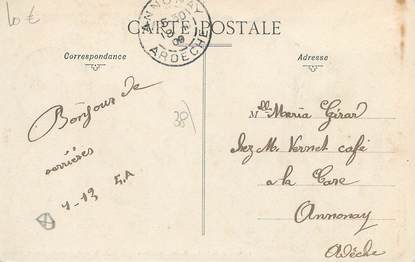 10 €
CARTE POSTALE
ANNONAY
ARDÈCHE
Correspondance
Adresse
Bonjour de
serrières
1-13 G.A
38
Mlle Maria Girard
chez M. Vernet café
a la Gare
Annonay
Ardèche